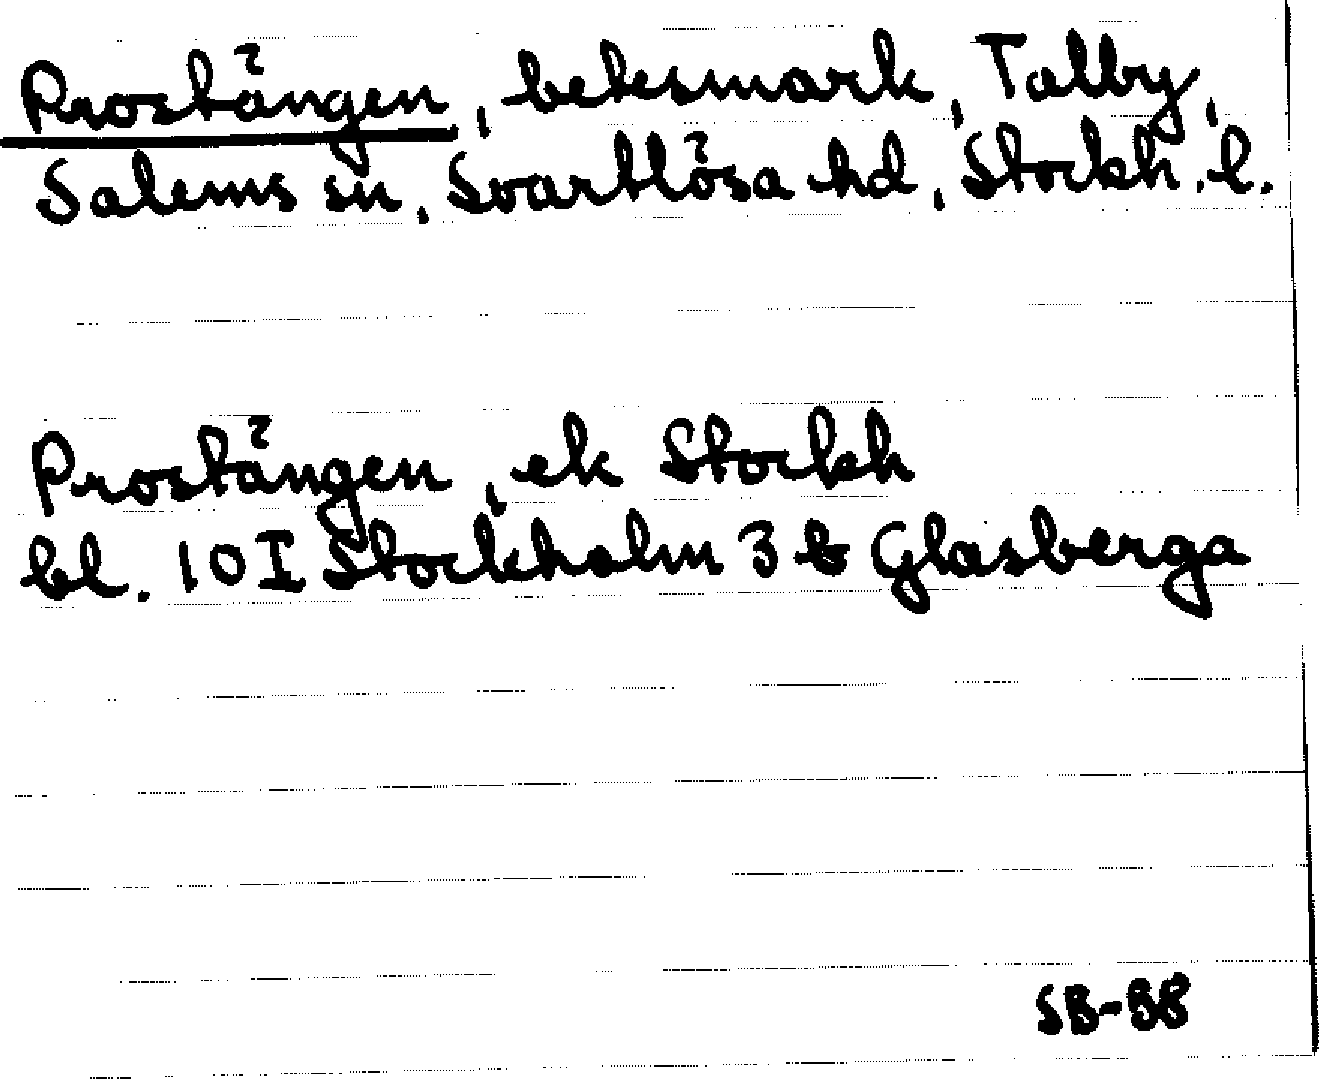 Prostängen, betesmark, Talby,
Salems sn, Svartlösa hd, Stockh. l.
Prostängen, ek Stockh
bl. 10I Stockholm 3 b Glasberga
SB-88